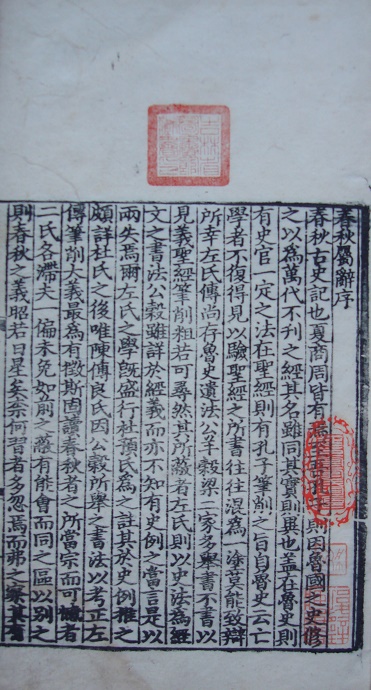 春秋屬辭序
春秋古史記也夏商周皆有焉至吾孔子則因魯國之史修
之以為萬代不刊之經其名雖同其實則異也蓋在魯史則
有史官一定之法在聖經則有孔子筆削之旨自魯史云亡
學者不復得見以驗聖經之所書往往混為一塗莫能致辯
所幸左氏傳尚存魯史遺法公羊穀梁二家多舉書不書以
見義聖經筆削粗若可尋然其所蔽者左氏則以史法為經
文之書法公穀雖詳於經義而亦不知有史例之當言是以
兩失焉爾左氏之學既盛行杜預氏為之註其於史例推之
頗詳杜氏之後唯陳傅良氏因公穀所舉之書法以考正左
傳筆削大義最為有徵斯固讀春秋者之所當宗而可憾者
二氏各滯夫一偏未免如前之蔽有能會而同之區以別之
則春秋之義昭若日星矣奈何習者多忽焉而弗之察其有